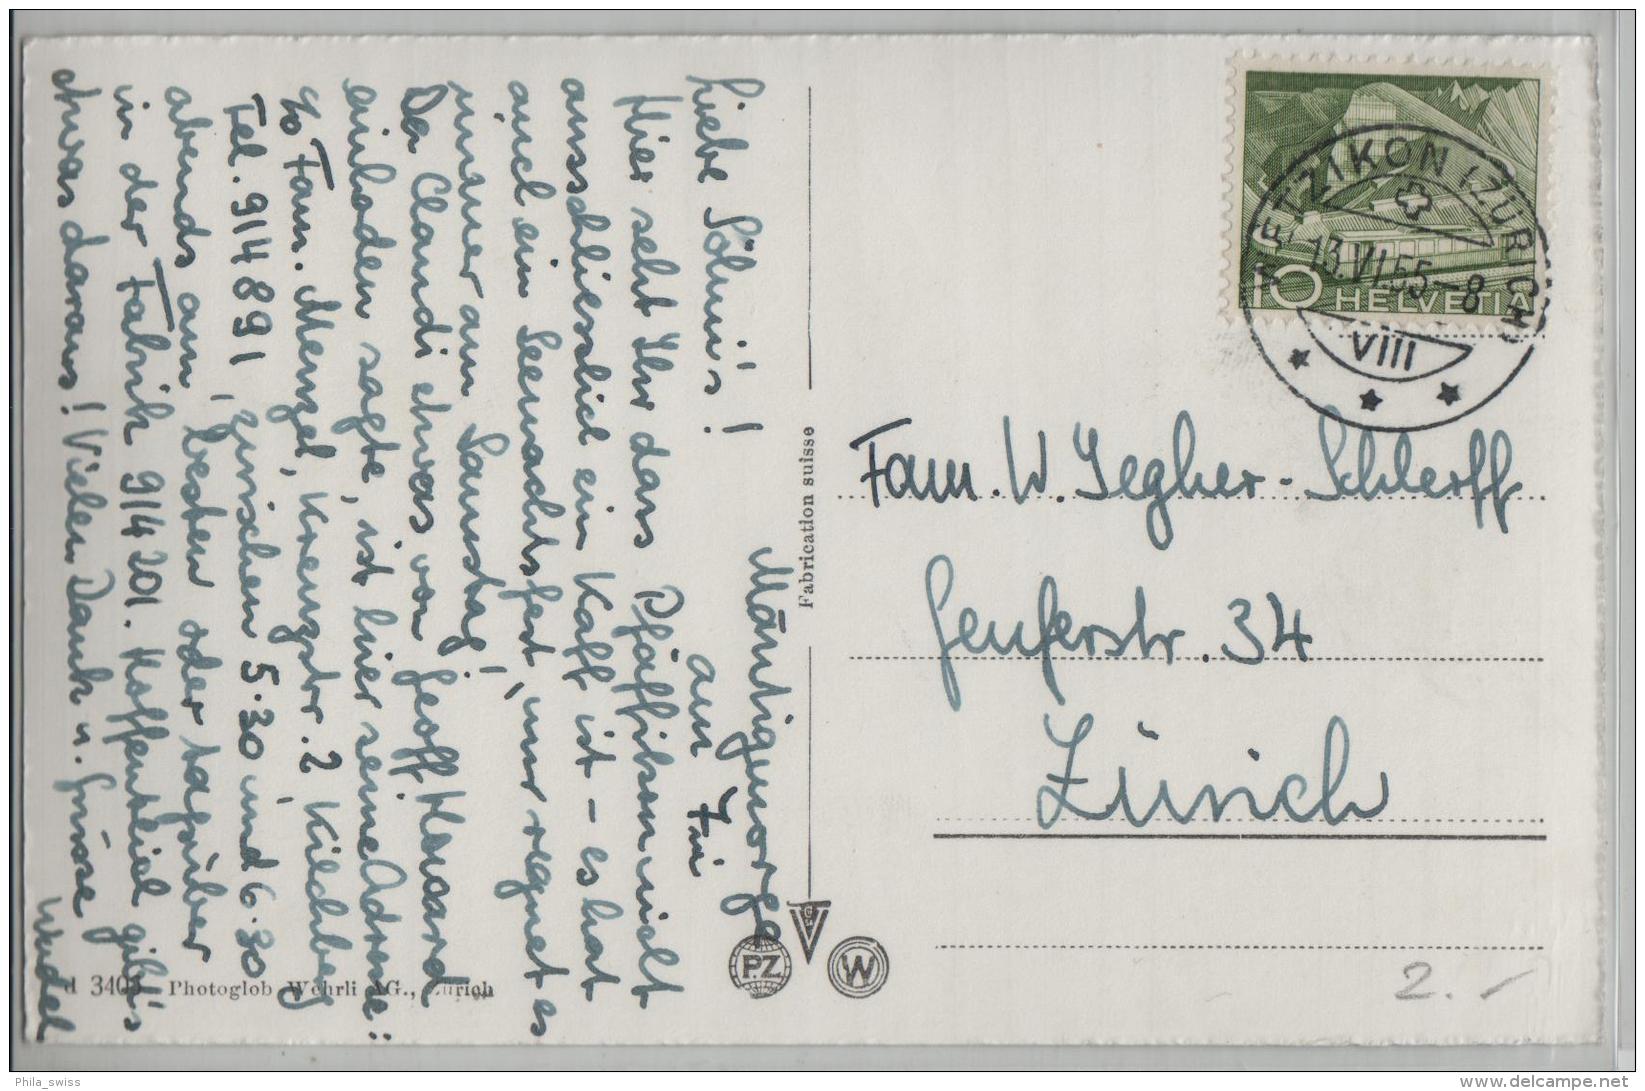 Mäntigmorge
am 7ni
Liebe Söhni's!
Hier seht Ihr dass Pfäffikon nicht
ausschliesslich ein Kaff ist – es hat
auch ein Seenachtsfest, nur regnet es
immer am Samstag!
Da Claudi etwas von Geoff Henoard
einladen sagte, ist hier seine Adresse:
c/o Fam. Menzel, Krengstr. 2, Kilchberg
Tel. 914891, zwischen 5.30 und 6.30
abends am besten oder tagsüber
in der Fabrik 914201. Hoffentlich gibt's
etwas daraus! Vielen Dank u. Grüsse
Fabrication suisse
WETZIKON (ZÜRICH)
13.VI.55–8
VIII
10 HELVETIA
Fam. W. Jegher-Schlerff
Genferstr. 34
Zürich
PZ
W
d 3405 Photoglob-Wehrli AG., Zürich
2.-
Phila_swiss
delcampe.net